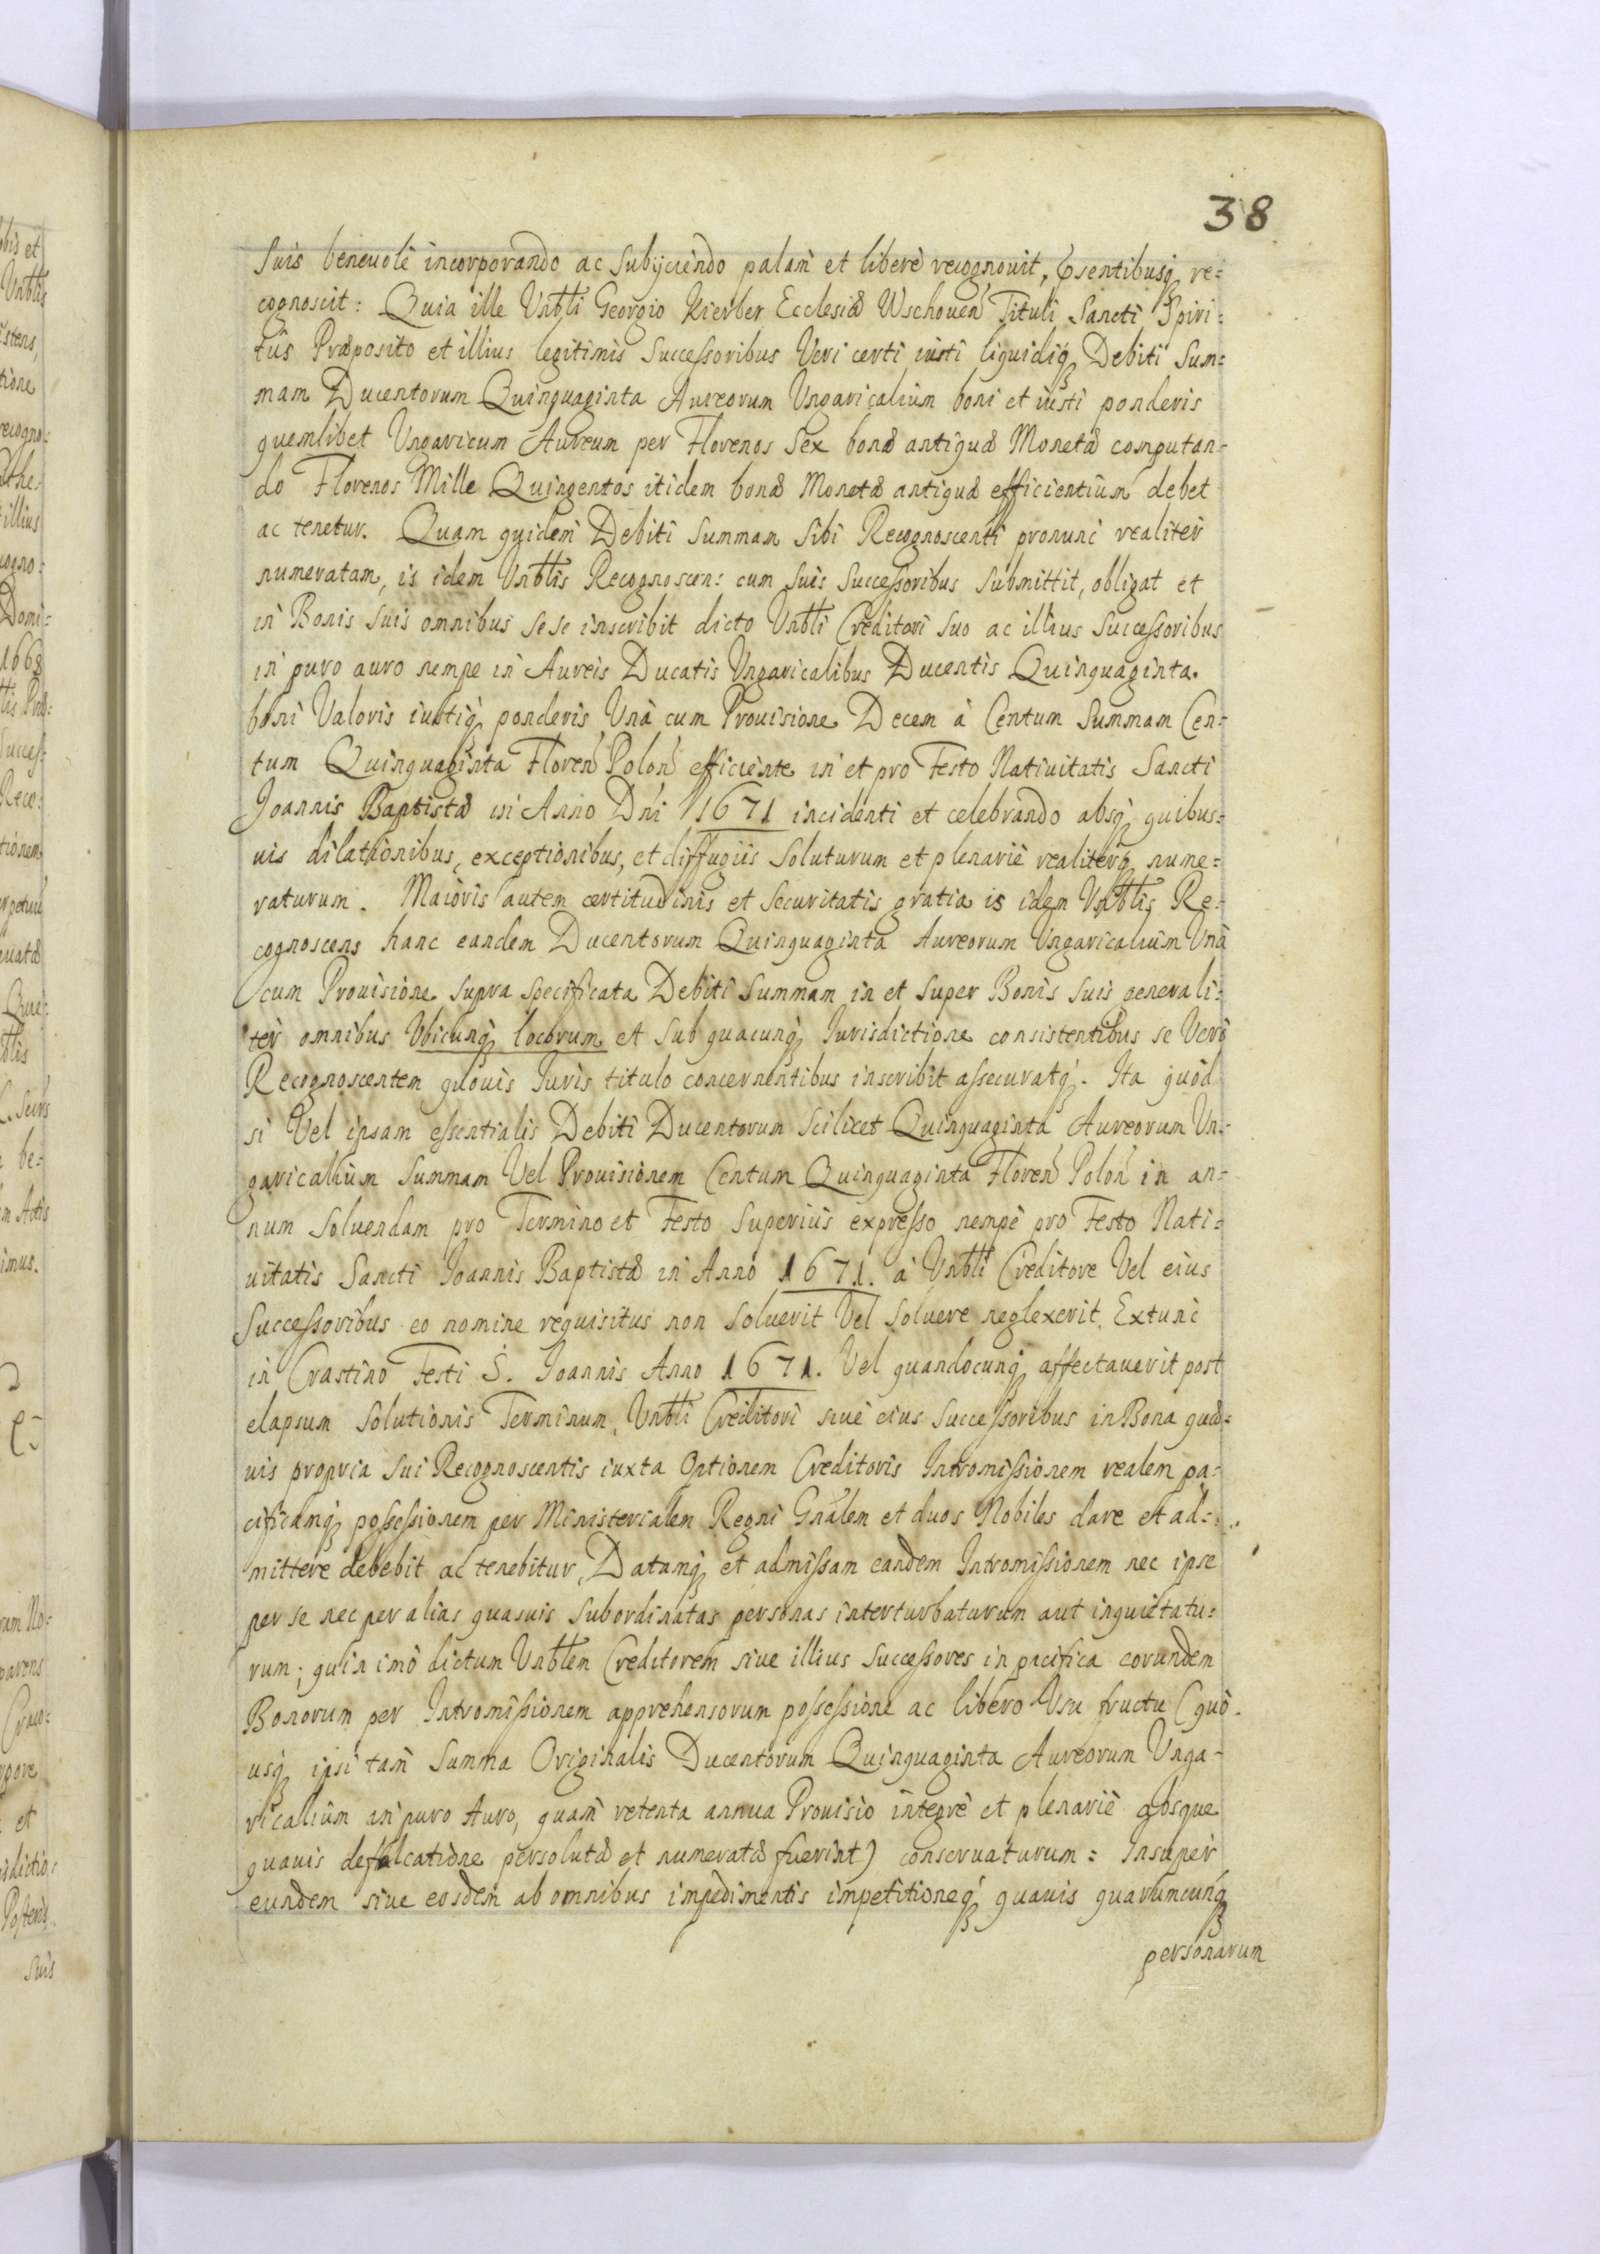 38
suis benevolè incorporando ac subijciendo palam et liberè recognovit, psentibusq re=
cognoscit: Quia ille Vnbli Georgio Kierber Ecclesiæ Wschoven Tituli Sancti Spiri=
tus Præposito et illius legitimis Successoribus Veri certi iusti liquidiq Debiti Sum=
mam Ducentorum Quinquaginta Aureorum Ungaricalium boni et iusti ponderis
quemlibet Ungaricum Aureum per Florenos Sex bonæ antiquæ Monetæ computan=
do Florenos Mille Quingentos itidem bonæ Monetæ antiquæ efficientium debet
ac tenetur. Quam quidem Debiti Summam sibi Recognoscenti pronunc realiter
numeratam, is idem Vnblis Recognoscens cum suis Successoribus submittit, obligat et
in Bonis suis omnibus sese inscribit dicto Vnbli Creditori suo ac illius Successoribus
in puro auro nempe in Aureis Ducatis Ungaricalibus Ducentis Quinquaginta.
boni Valoris iustiq ponderis Unà cum Provisione Decem à Centum Summam Cen=
tum Quinquaginta Floren Polon efficiente in et pro Festo Nativitatis Sancti
Joannis Baptistæ in Anno Dni 1671 incidenti et celebrando absq quibus=
vis dilationibus, exceptionibus, et diffugiis soluturum et plenariè realiterq nume=
raturum. Maioris autem certitudinis et securitatis gratia is idem Vnblis Re=
cognoscens hanc eandem Ducentorum Quinquaginta Aureorum Ungaricalium Unà
cum Provisione supra specificata Debiti Summam in et super Bonis suis generali=
ter omnibus Ubicunq locorum et sub quacunq Jurisdictione consistentibus se Verò
Recognoscentem quovis Juris titulo concernentibus inscribit assecuratq. Ita quòd
si Vel ipsam essentialis Debiti Ducentorum scilicet Quinquaginta Aureorum Un=
garicalium Summam Vel Provisionem Centum Quinquaginta Floren Polon in an=
num solvendam pro Termino et Festo superius expresso nempè pro Festo Nati=
vitatis Sancti Joannis Baptistæ in Anno 1671. à Vnbli Creditore Vel eius
Successoribus eo nomine requisitus non solverit Vel solvere neglexerit. Extunc
in Crastino Festi S. Joannis Anno 1671. Vel quandocunq affectaverit post
elapsum Solutionis Terminum, Vnbli Creditori sive eius Successoribus in Bona quæ=
vis propria sui Recognoscentis iuxta Optionem Creditoris Intromissionem realem pa=
cificamq possessionem per Ministerialem Regni Gnalem et duos Nobiles dare et ad=
mittere debebit ac tenebitur, Datamq et admissam eandem Intromissionem nec ipse
per se nec per alias quasvis subordinatas personas interturbaturum aut inquietatu=
rum; quin imò dictum Vnblem Creditorem sive illius Successores in pacifica eorundem
Bonorum per Intromissionem apprehensorum possessione ac libero Usu fructu (quò=
usq ipsi tam Summa Originalis Ducentorum Quinquaginta Aureorum Unga=
ricalium in puro Auro, quam retenta annua Provisio integrè et plenariè absque
quavis defalcatione persolutæ et numeratæ fuerint) conservaturum: Insuper
eundem sive eosdem ab omnibus impedimentis impetitioneq quavis quarumcunq
personarum